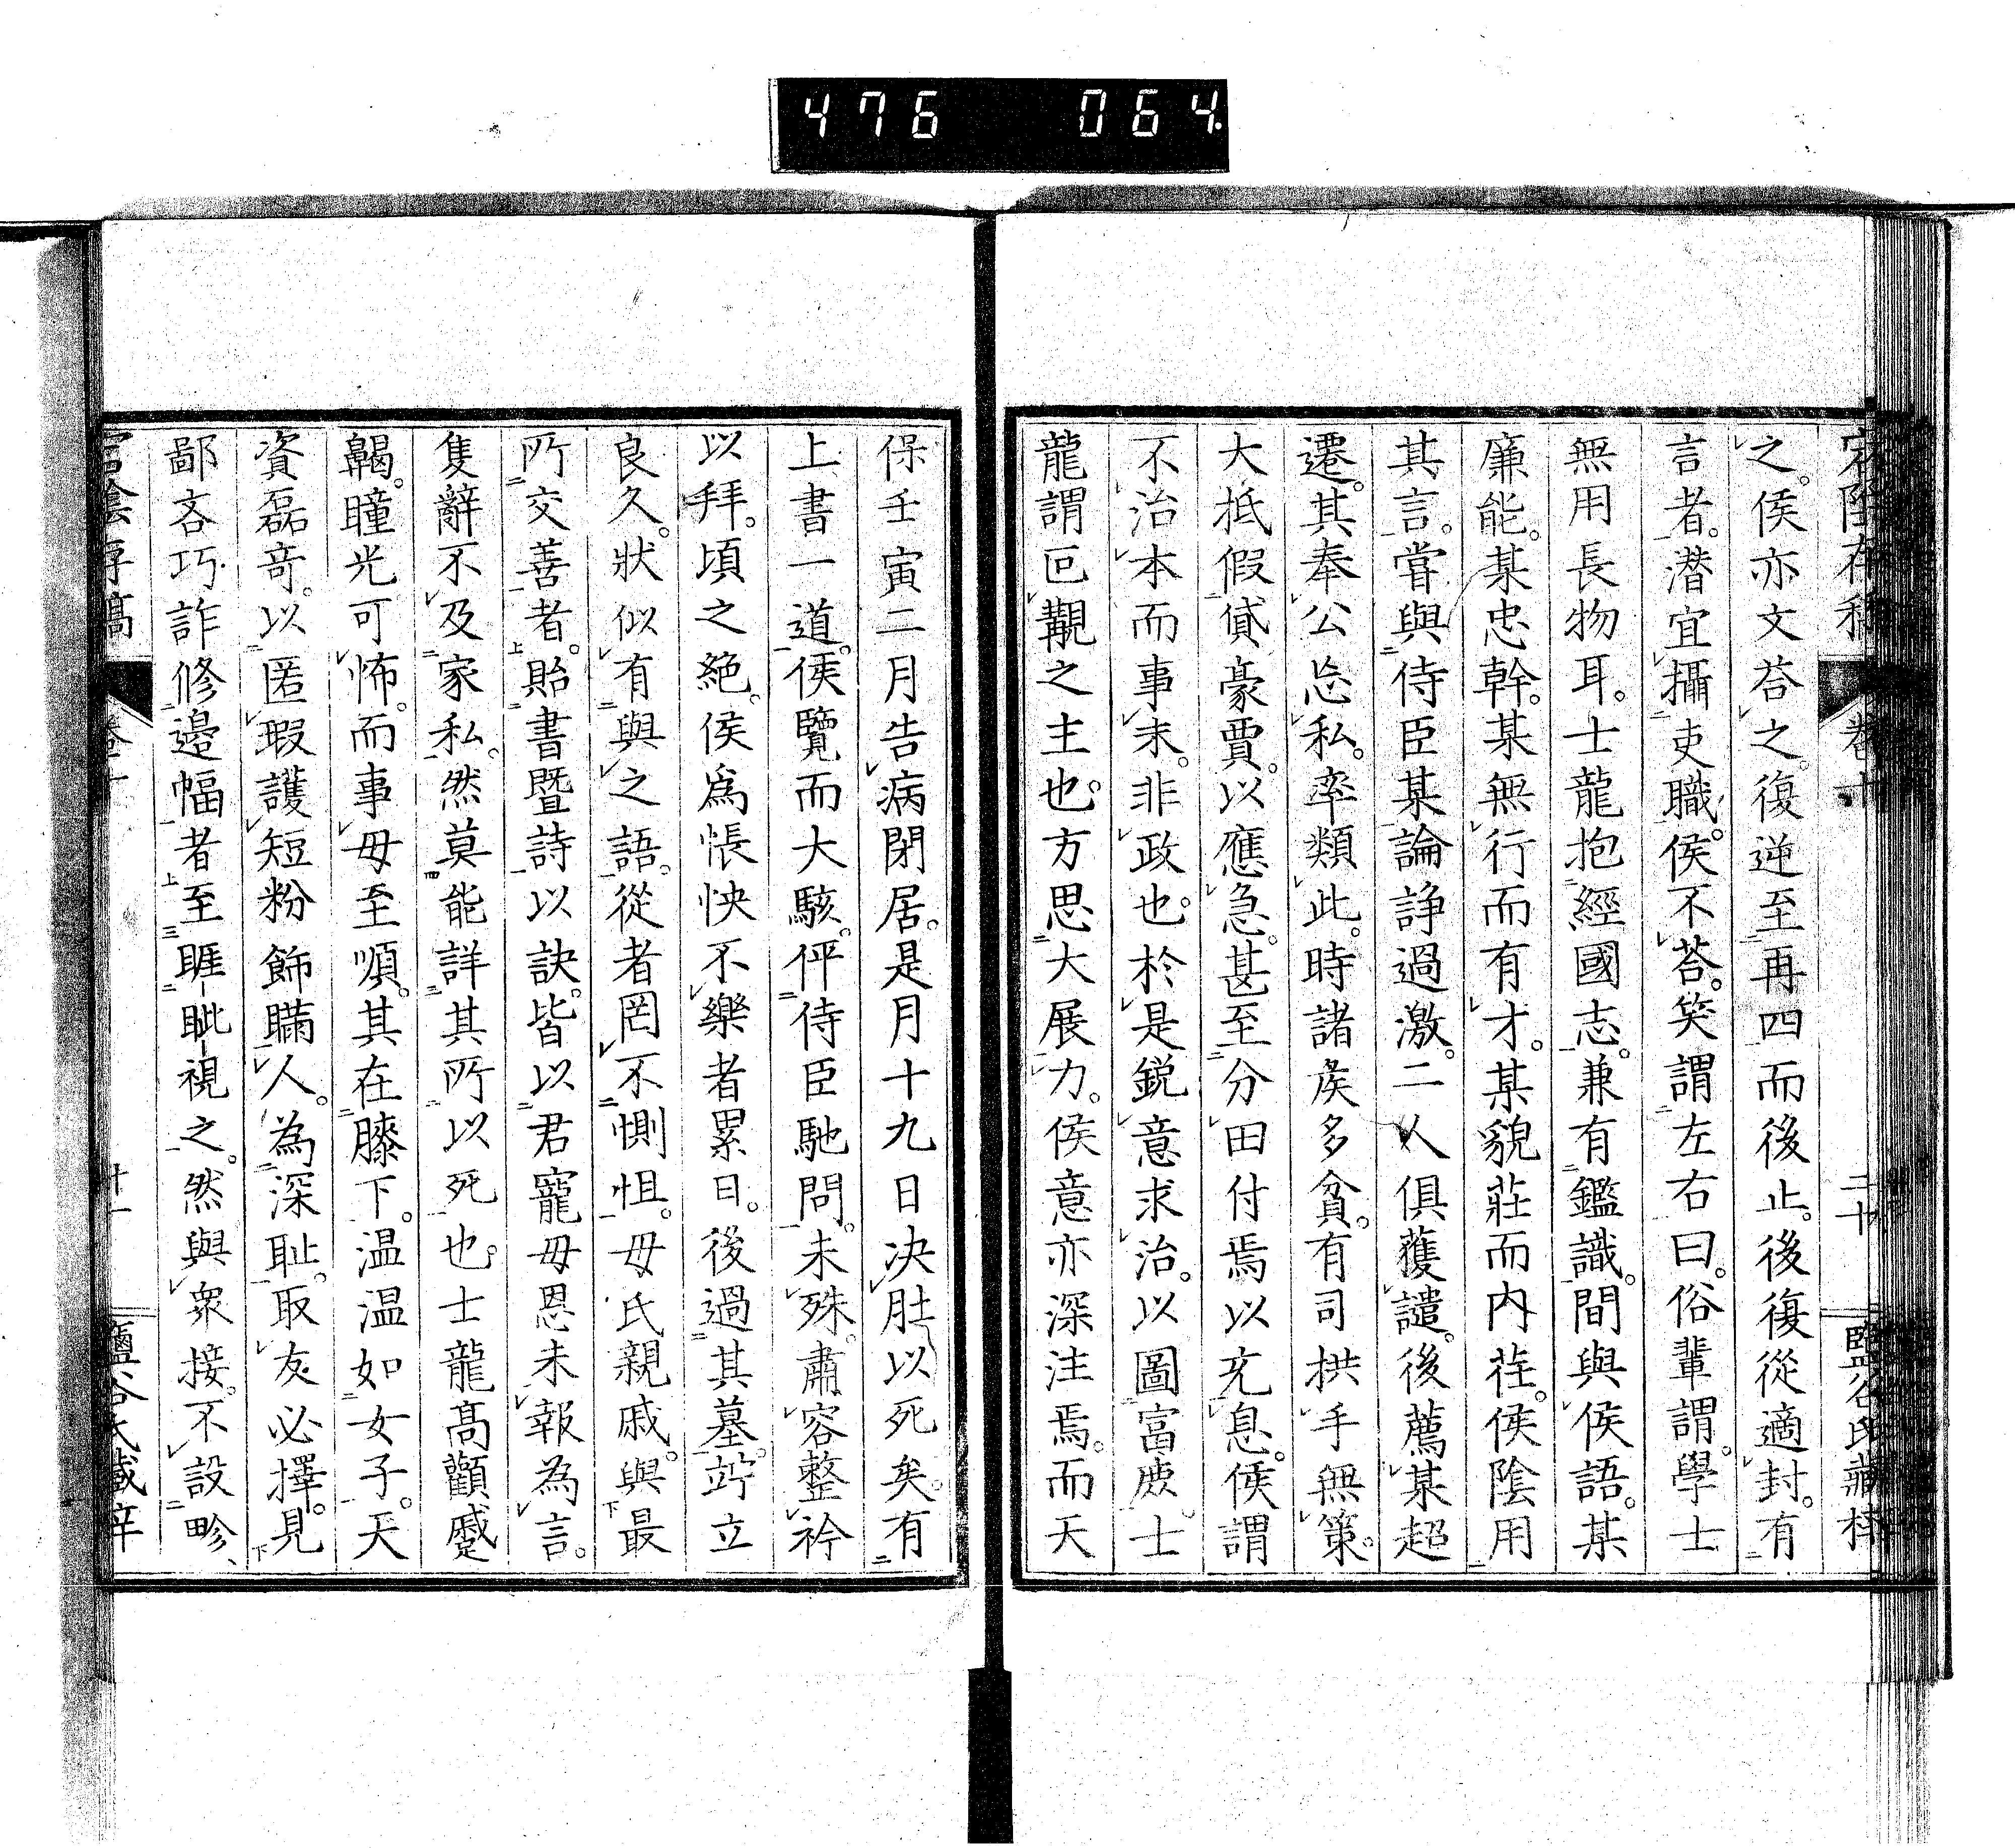 476 064
之。侯亦文荅之。復逆至再四而後止。後復從適封。有
言者。潛宜攝吏職。侯不荅。笑謂左右曰。俗輩謂。學士
無用長物耳。士龍抱經國志。兼有鑑識。間與侯語。某
廉能。某忠幹。某無行而有才。某貌莊而內荏。侯陰用
其言。嘗與侍臣某論諍過激。二人俱獲譴。後薦某超
遷。其奉公忘私。率類此。時諸矦多貧。有司拱手無策。
大抵假貸豪賈。以應急。甚至分田付焉以充息。侯謂
不治本而事末。非政也。於是鋭意求治。以圖富庶。士
龍謂叵覯之主也。方思大展力。侯意亦深注焉。而天
保壬寅二月告病閉居。是月十九日决肚以死矣。有
上書一道。侯覽而大駭。伻侍臣馳問。未殊。肅容整衿
以拜。頃之絶。侯爲悵怏不樂者累日。後過其墓。竚立
良久。狀似有與之語。從者罔不惻怛。母氏親戚。與最
所交善者。貽書暨詩以訣。皆以君寵母恩未報為言。
隻辭不及家私。然莫能詳其所以死也。士龍高顴蹙
齃。瞳光可怖。而事母至順。其在膝下。温温如女子。天
資磊竒。以匿瑕護短粉飾瞞人。為深恥。取友必擇。見
鄙吝巧詐修邉幅者至睚眦視之。然與衆接。不設畛
卷十